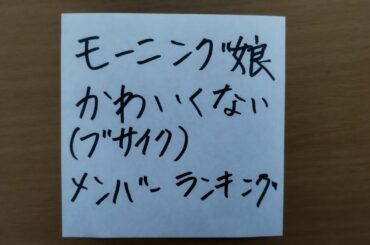 モーニング娘
かわいくない
(ブサイク)
メンバーランキング